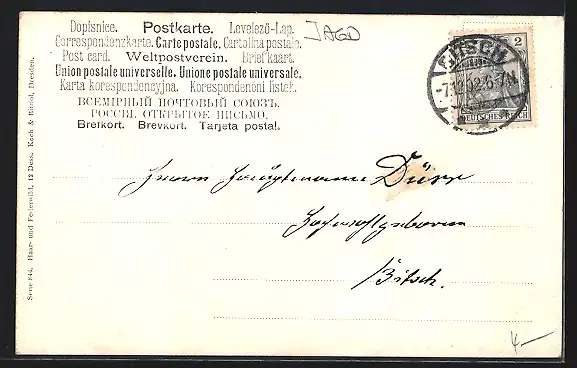 Dopisnice. Postkarte. Levelező-Lap.
Correspondenzkarte. Carte postale. Cartolina postale.
Post card. Weltpostverein. Briefkaart.
Union postale universelle. Unione postale universale.
Karta korespondencyjna. Korespondenčni listek.
ВСЕМІРНЫЙ ПОЧТОВЫЙ СОЮЗЪ.
РОССІЯ. ОТКРЫТОЕ ПИСЬМО.
Brefkort. Brevkort. Tarjeta postal.
JAGD
2
BITSCH
-7.12.02.6-7N
DEUTSCHES REICH
Herrn Hauptmann Dürr
Hochwohlgeboren
Bitsch.
Serie 844, Haar- und Federwild, 12 Dess. Koch & Bitriol, Dresden.
4—